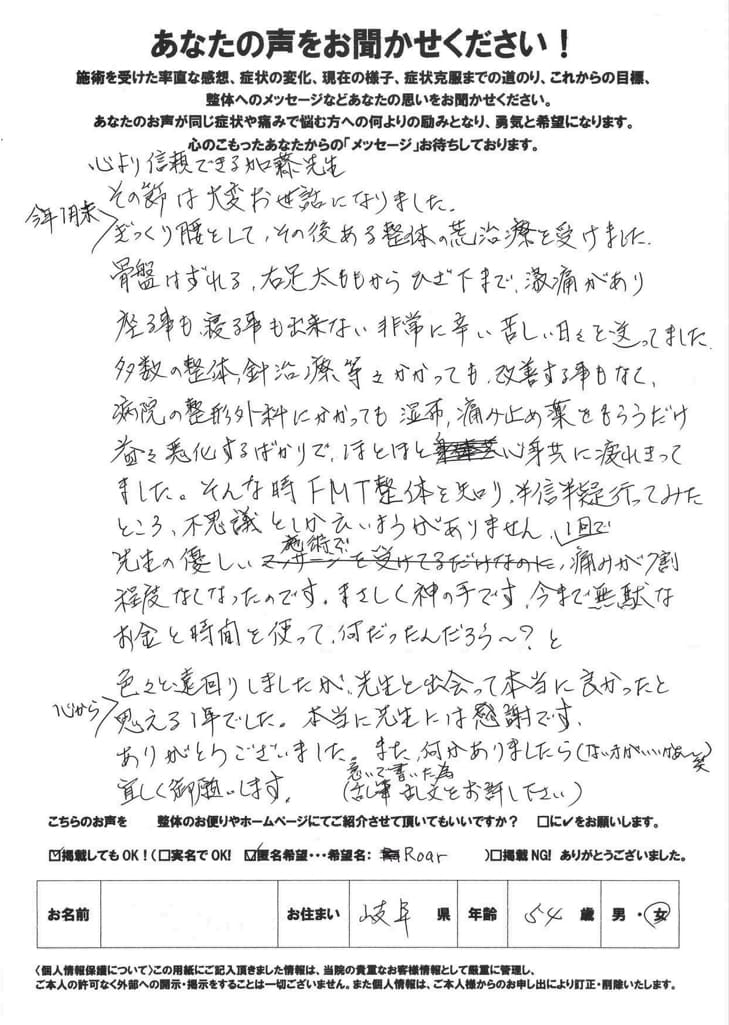 あなたの声をお聞かせください！
施術を受けた率直な感想、症状の変化、現在の様子、症状克服までの道のり、これからの目標、
整体へのメッセージなどあなたの思いをお聞かせください。
あなたのお声が同じ症状や痛みで悩む方への何よりの励みとなり、勇気と希望になります。
心のこもったあなたからの「メッセージ」お待ちしております。
心より信頼できる加藤先生
その節は大変お世話になりました。
今年1月末
ぎっくり腰として、その後ある整体の荒治療を受けました。
骨盤はずれる、右足太ももからひざ下まで、激痛があり
座る事も、寝る事も出来ない非常に辛い苦しい日々を送ってました。
多数の整体、針治療、等々かかっても、改善する事もなく、
病院の整形外科にかかっても湿布、痛み止め薬をもらうだけ
益々悪化するばかりで、ほとほと心身共に疲れきって
ました。そんな時FMT整体を知り、半信半疑行ってみた
ところ、不思議としか云いようがありません、1回で
先生の優しい施術で、痛みが7割
程度なくなったのです。まさしく神の手です、今まで無駄な
お金と時間を使って、何だったんだろう〜？と
色々と遠回りしましたが、先生と出会って本当に良かったと
心から
思える1年でした。本当に先生には感謝です。
ありがとうございました。また、何かありましたら(ない方がいいけど〜笑)
宜しく御願いします。
急いで書いた為
(乱筆乱文をお許し下さい)
こちらのお声を　整体のお便りやホームページにてご紹介させて頂いてもいいですか？　□に✓をお願いします。
☑掲載してもOK！(□実名でOK! ☑匿名希望・・・希望名： Roar )□掲載NG! ありがとうございました。
お名前　お住まい　岐阜 県　年齢　54 歳　男・女
〈個人情報保護について〉この用紙にご記入頂きました情報は、当院の貴重なお客様情報として厳重に管理し、
ご本人の許可なく外部への開示・掲示をすることは一切ございません。また個人情報は、ご本人様からのお申し出により訂正・削除いたします。